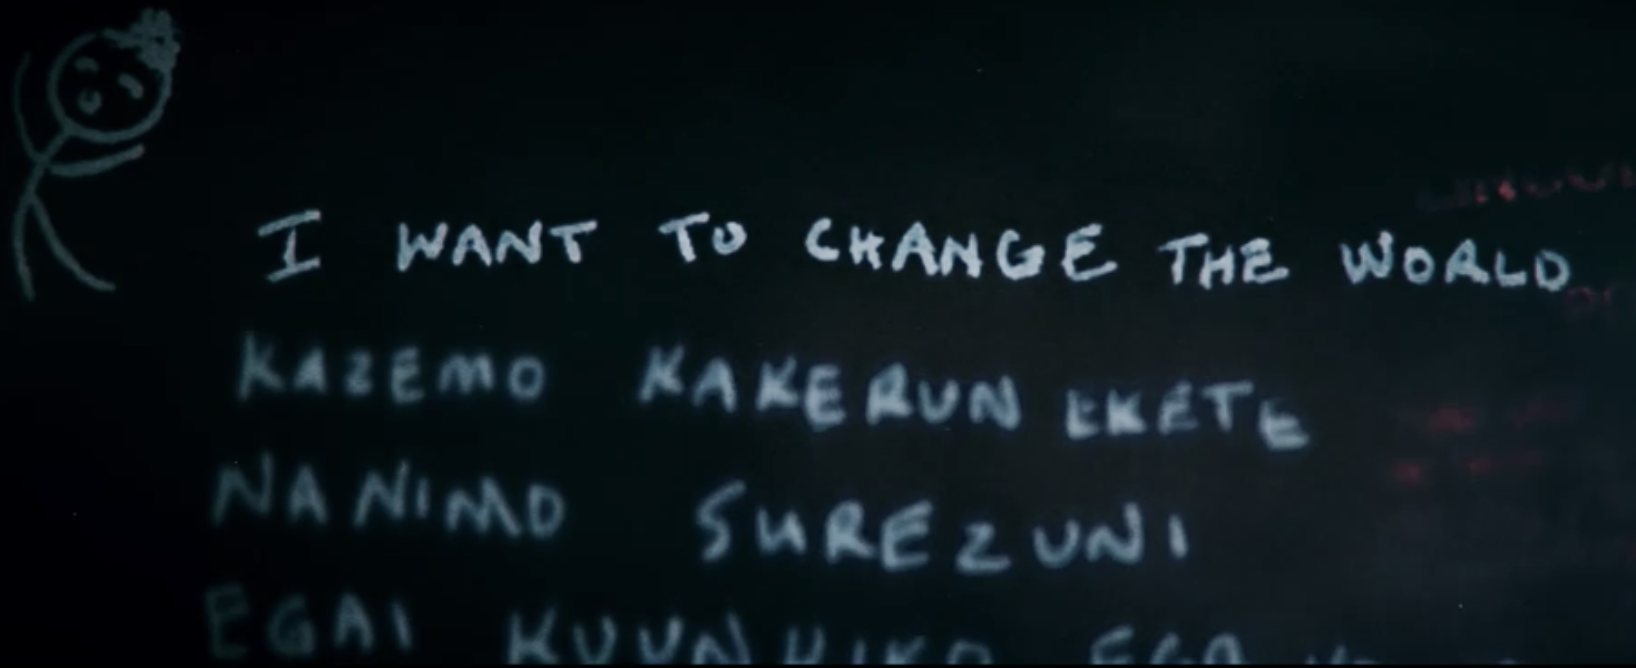 I WANT TO CHANGE THE WORLD
KAZEMO KAKERUN EKETE
NANIMO SUREZUNI
EGAI